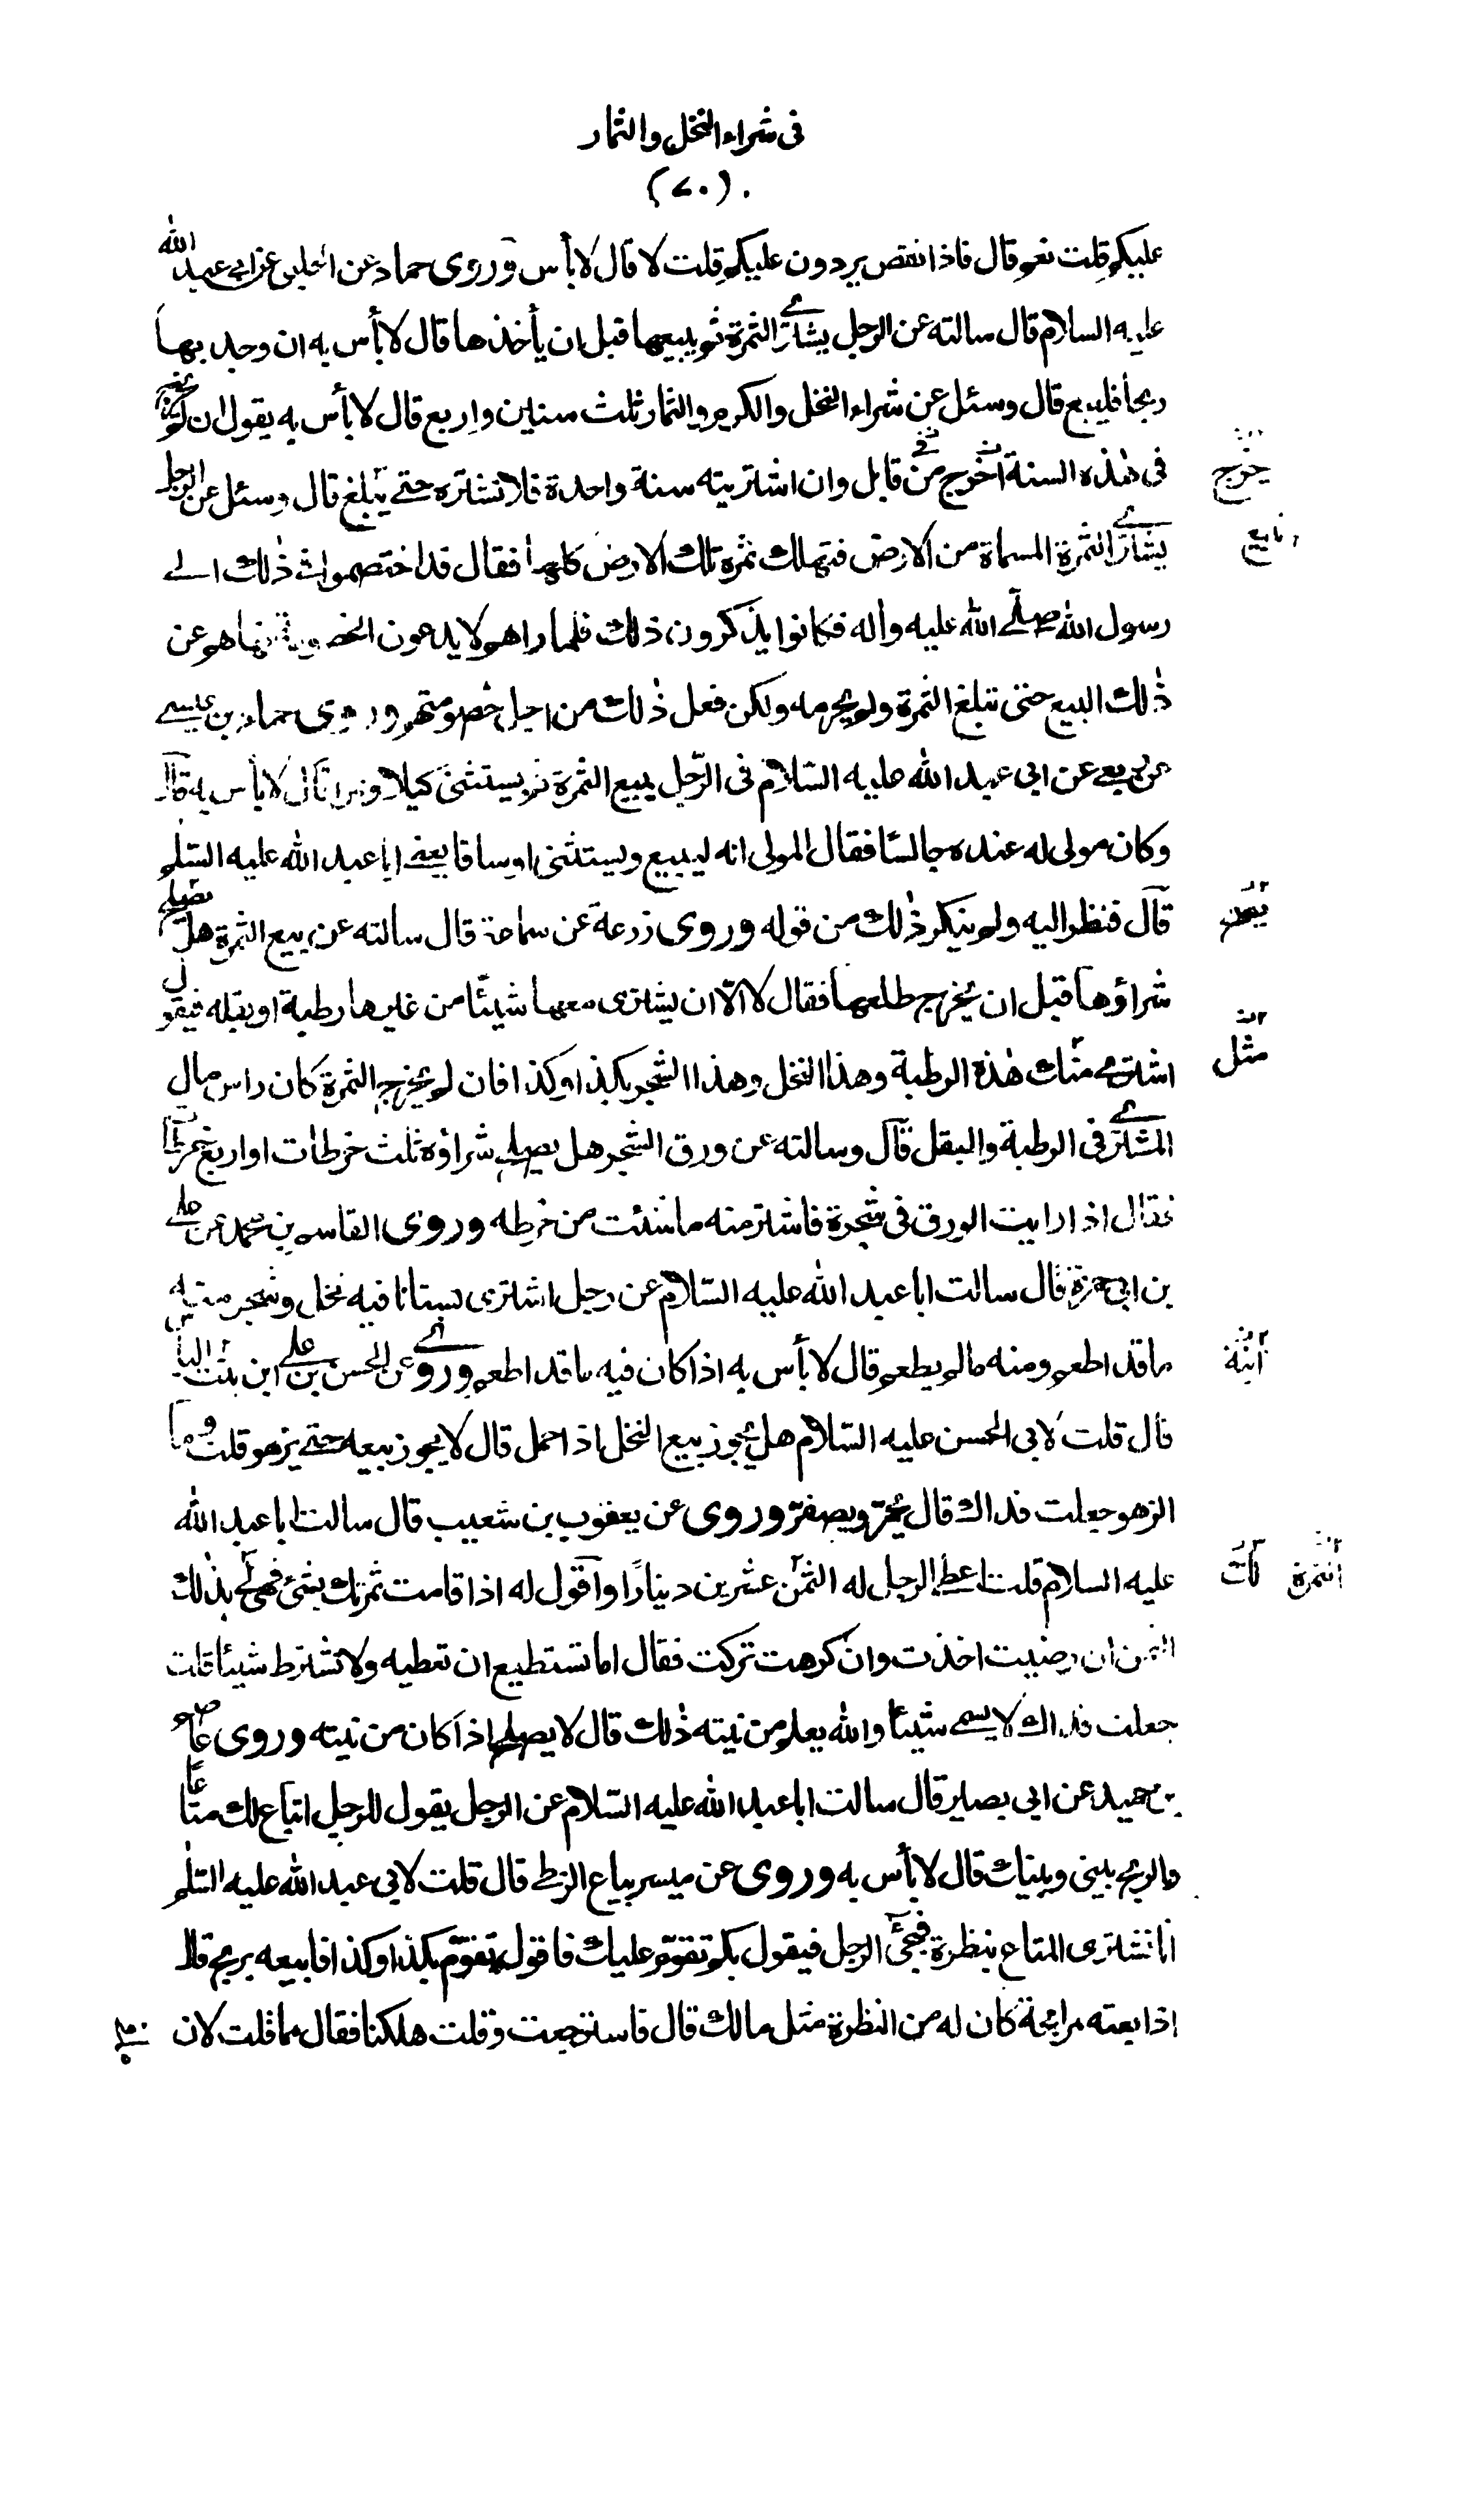 فى شراء النخل والثمار
(٧٠)
عليكم قلت نعم قال فاذا نقص يردون عليكم قلت لا قال لا بأس وروى حماد عن الحلبى عن ابى عبد الله
عليه السلام قال سالته عن الرجل يشترے الثمرة ثم يبيعها قبل ان يأخذها قال لا بأس به ان وجد بها
ربحا فليبع قال وسئل عن شراء النخل والكرم والثمار ثلث سنين واربع قال لا بأس به يقول ان لم يخرج
فى هذه السنة اخرج من قابل وان اشتريته سنة واحدة فلا تشتره حتے يبلغ قال وسئل عن الرجل
يخرج
يشترے الثمرة المسماة من الارض فتهلك ثمرة تلك الارض كلها فقال قد اختصموا فى ذلك الے
رسول الله صلے الله عليه واله فكانوا يذكرون ذلك فلما راهم لا يدعون الخصومة نهاهم عن
ذلك البيع حتى تبلغ الثمرة ولم يحرمه ولكن فعل ذلك من اجل خصومتهم وروى حماد بن عيسے
عن ربعے عن ابى عبد الله عليه السلام فى الرجل يبيع الثمرة ثم يستثنى كيلا وتمرا قال لا بأس به قال
وكان مولى له عنده جالسا فقال المولى انه ليبيع ويستثنى اوساقا يعنے ابا عبد الله عليه السلم
قال فنظر اليه ولم ينكر ذلك من قوله وروى زرعة عن سماعة قال سالته عن بيع الثمرة هل يصلح
شراؤها قبل ان يخرج طلعها فقال لا الا ان يشترى معها شيئا من غيرها رطبة او بقله فيقول
اشترے منك هذه الرطبة وهذا النخل وهذا الشجر بكذا وكذا فان لم يخرج الثمرة كان راس مال
مثل
المشترے فى الرطبة والبقل قال وسالته عن ورق الشجر هل يصلح شراؤه ثلث خرطات او اربع خرطات
فقال اذا رايت الورق فى شجرة فاشتر منه ما شئت من خرطه وروى القاسم بن محمد عن علے
بن ابى حمزة قال سالت ابا عبد الله عليه السلام عن رجل اشترى بستانا فيه نخل وشجر منه
ما قد اطعم ومنه ما لم يطعم قال لا بأس به اذا كان فيه ما قد اطعم وروے عن الحسن بن علے ابن بنت اليا
قال قلت لابى الحسن عليه السلام هل يجوز بيع النخل اذا حمل قال لا يجوز بيعه حتے يزهو قلت وما
الزهو جعلت فداك قال يحمر ويصفر وروى عن يعقوب بن شعيب قال سالت ابا عبد الله
عليه السلام قلت اعطے الرجل له الثمن عشرين دينارا واقول له اذا قامت ثمرتك بشئ فهى لے بذلك
الثمرة
الثمن ان رضيت اخذت وان كرهت تركت فقال اما تستطيع ان تعطيه ولا تشترط شيئا قلت
جعلت فداك لا يسمے شيئا والله يعلم من نيته ذلك قال لا يصلح اذا كان من نيته وروى عاصم
بن حميد عن ابى بصير قال سالت ابا عبد الله عليه السلام عن الرجل يقول للرجل ابتاع لك متاعا
والربح بينى وبينك قال لا بأس به وروى عن ميسر بياع الزطے قال قلت لابى عبد الله عليه السلم
انا نشترى المتاع بنظرة فيجئ الرجل فيقول بكم تقوم عليك فاقول تقوم بكذا وكذا فابيعه بربح قال
اذا بعته مرابحة كان له من النظرة مثل مالك قال فاسترجعت وقلت هلكنا فقال مما قلت لان